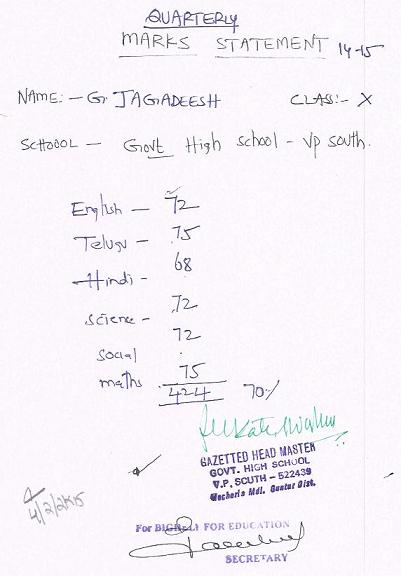 QUARTERLY
MARKS STATEMENT 14-15
NAME:- G. JAGADEESH CLASS:- X
SCHOOOL - Govt High school - Vp south.
English - 72
Telugu - 75
Hindi - 68
science - 72
social 72
maths 75
424 70%
GAZETTED HEAD MASTER
GOVT. HIGH SCHOOL
V.P. SOUTH - 522439
Macherla Mdl. Guntur Dist.
4/2/2K15
For FOR EDUCATION
SECRETARY